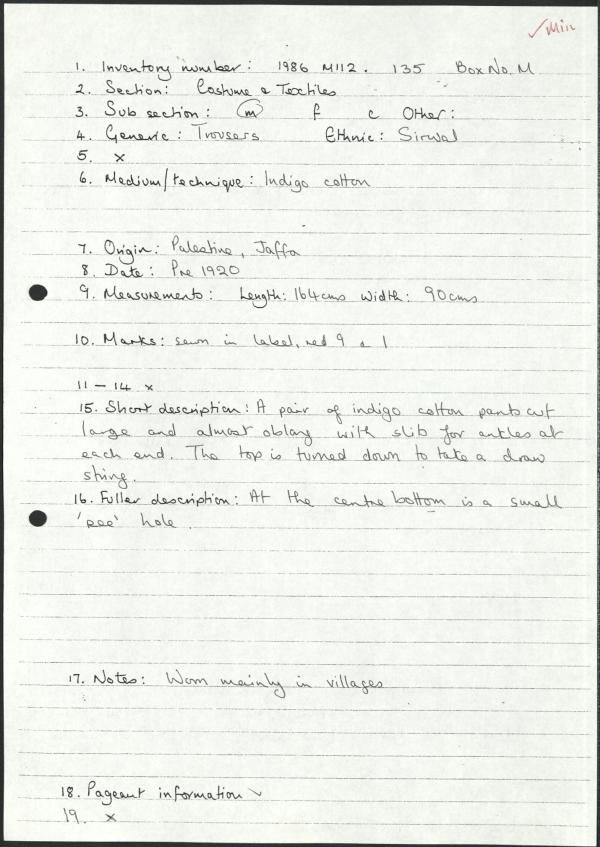 ✓Min
1. Inventory number: 1986 M112. 135 Box No. M
2. Section: Costume & Textiles
3. Sub section: m f c Other:
4. Generic: Trousers Ethnic: Sirwal
5. x
6. Medium/technique: Indigo cotton
7. Origin: Palestine, Jaffa
8. Date: Pre 1920
9. Measurements: Length: 164cms Width: 90cms
10. Marks: sewn in label, red 9 & 1
11 - 14 x
15. Short description: A pair of indigo cotton pants cut
large and almost oblong with slits for ankles at
each end. The top is turned down to take a draw
string.
16. Fuller description: At the centre bottom is a small
'pee' hole.
17. Notes: Worn mainly in villages
18. Pageant information ✓
19. x